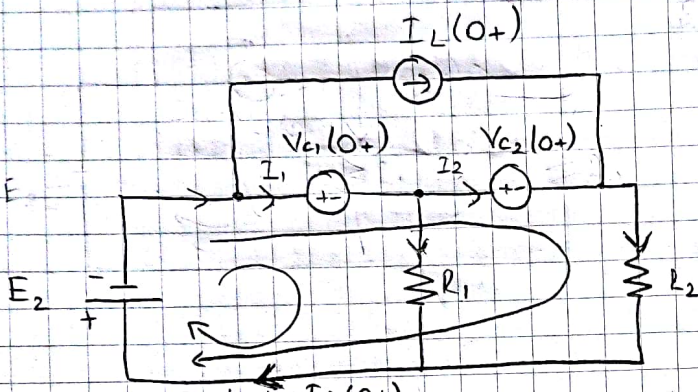 IL(0+)
Vc1(0+)
Vc2(0+)
I1
I2
+-
+-
E
E2
-
+
R1
R2